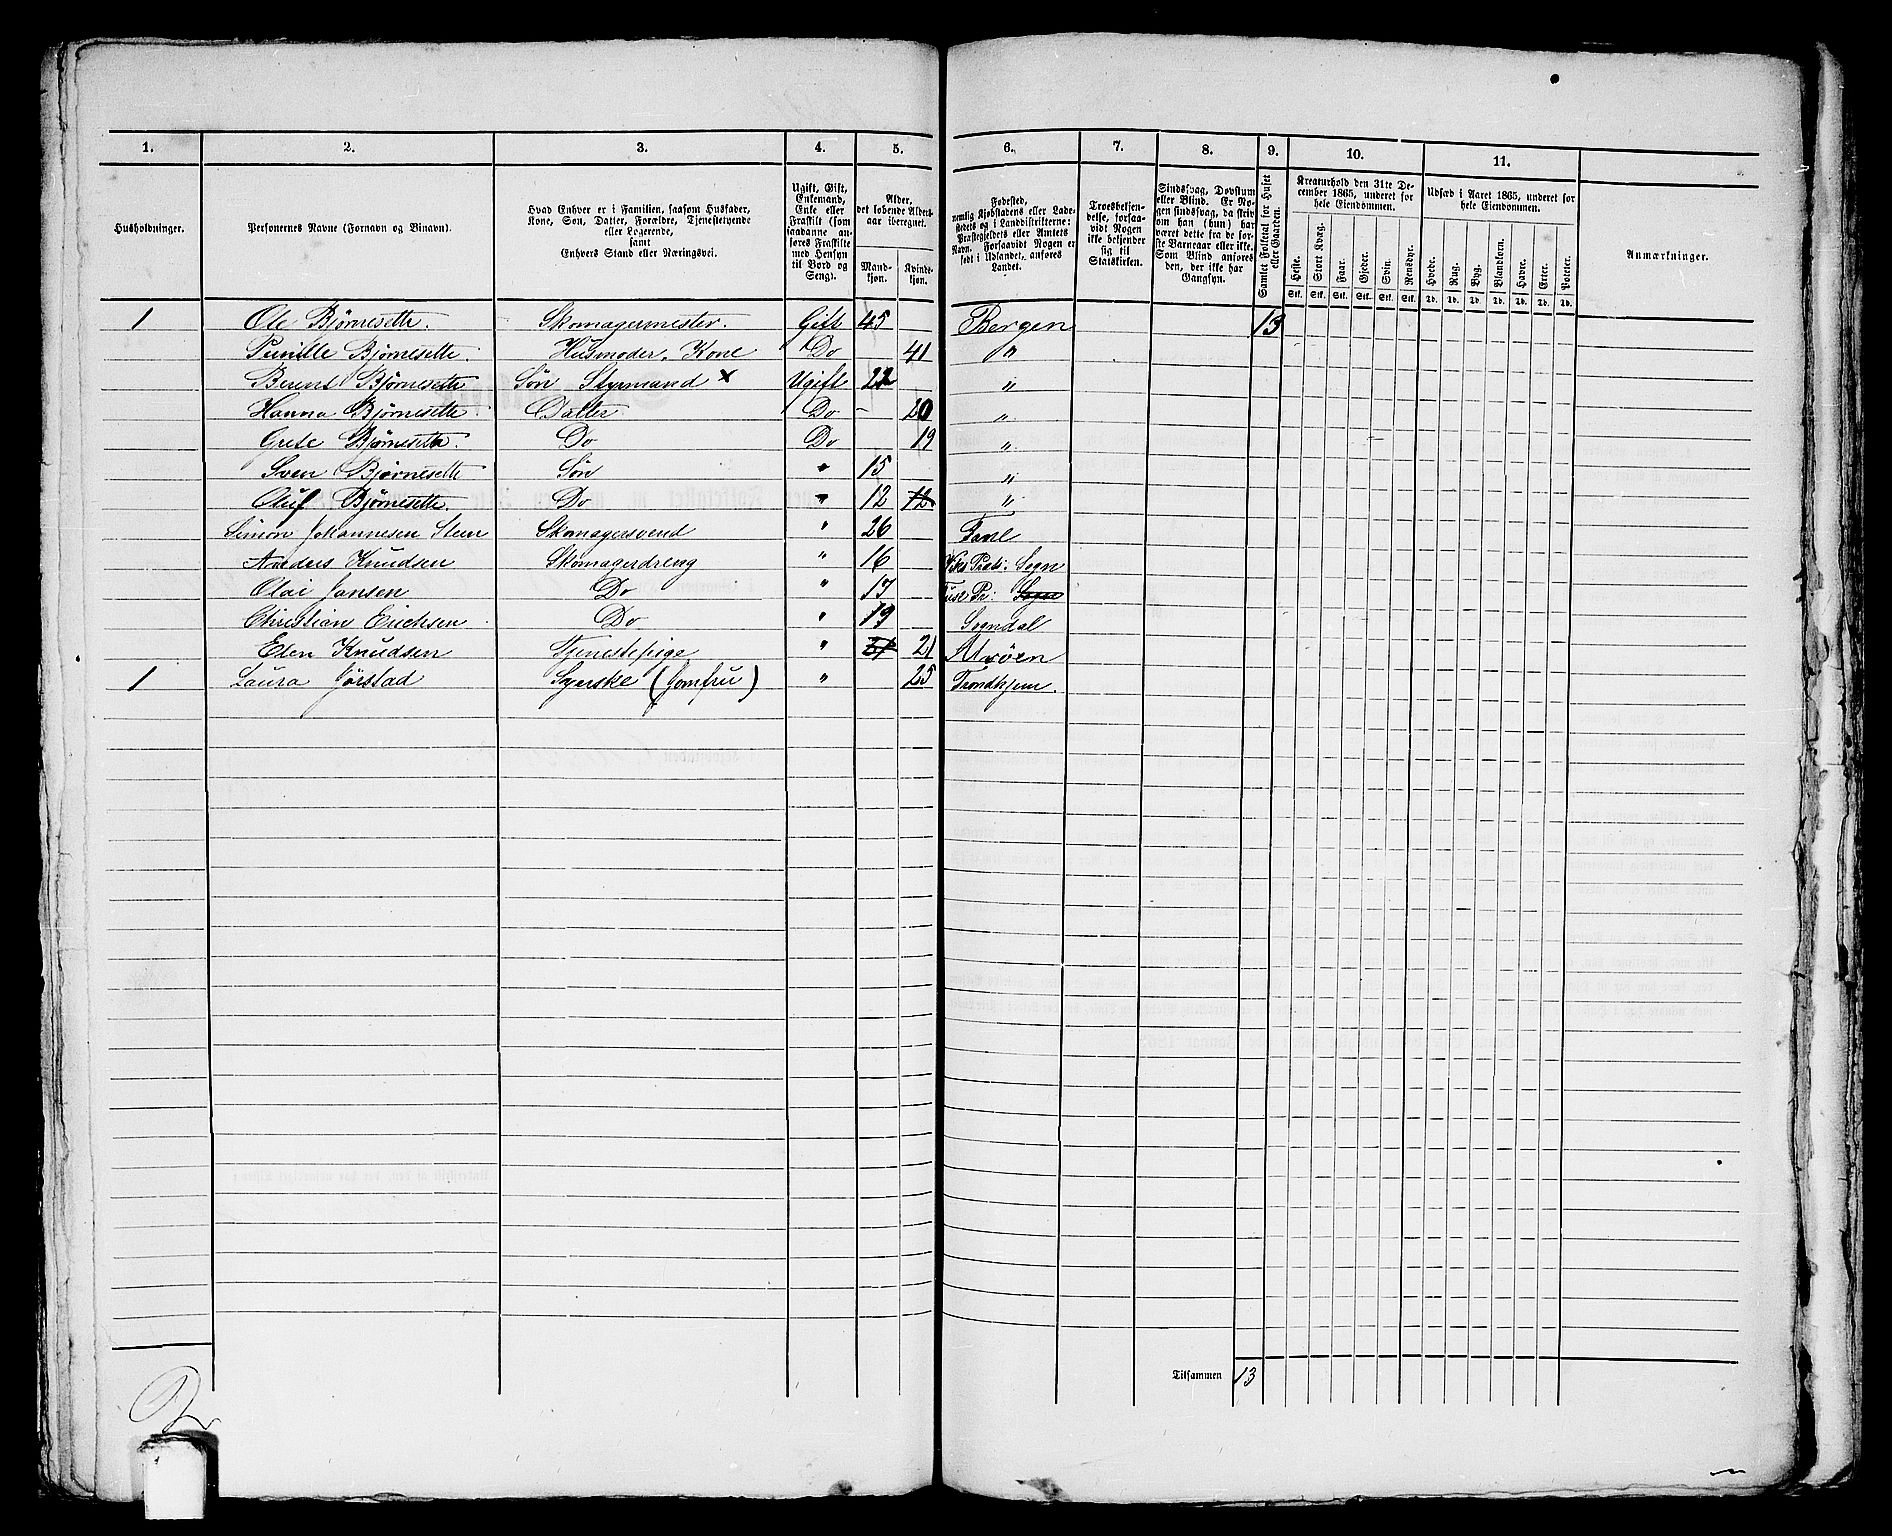 1. 2. 3. 4. 5. 6. 7. 8. 9. 10. 11.
Husholdninger. Personernes Navne (Fornavn og Binavn).
Hvad Enhver er i Familien, saasom Husfader, Kone, Søn, Datter, Forældre, Tjenestetyende eller Logerende, samt Enhvers Stand eller Næringsvei.
Ugift, Gift, Enkemand, Enke eller Fraskilt (som saadanne anføres Fraskilte med Hensyn til Bord og Seng).
Alder, det løbende Alders-aar iberegnet. Mand-kjøn. Kvinde-kjøn.
Fødested, nemlig Kjøbstadens eller Ladestedets og i Landdistrikterne: Præstegjeldets eller Amtets Navn. Forsaavidt Nogen er født i Udlandet, anføres Landet.
Troesbekjendelse, forsaavidt Nogen ikke bekjender sig til Statskirken.
Sindssvag, Døvstum eller Blind. Er Nogen sindssvag, da skrives om han (hun) har været dette fra de første Barneaar eller ikke. Som Blind anføres den, der ikke har Gangsyn.
Samlet Folketal for Huset eller Gaarden.
Kreaturhold den 31te December 1865, underet for hele Eiendommen.
Heste. Stort Kvæg. Faar. Gjeder. Svin. Rensdyr.
Stk. Stk. Stk. Stk. Stk. Stk.
Udsæd i Aaret 1865, underet for hele Eiendommen.
Hvede. Rug. Byg. Blandkorn. Havre. Erter. Poteter.
Td. Td. Td. Td. Td. Td. Td.
Anmærkninger.
1 Ole Bjørnesette. Skomagermester. Gift 45 Bergen 13
Pernille Bjørnesette. Husmoder. Kone Do 41 "
Berent Bjørnesette Søn Styrmand x Ugift 22 "
Hanna Bjørnesette. Datter Do - 20 "
Grete Bjørnesette. Do Do 19 "
Sven Bjørnesette Søn " 15 "
Oluf Bjørnesette Do " 12 12 "
Simon Johannesen Steen Skomagersvend " 26 Fane
Anders Knudsen Skomagerdreng " 16 Viks Præst: Sogn
Olai Jansen Do " 17 Fuse Pr: Sogn
Christian Erichsen Do " 19 Sogndal
Elen Knudsen Tjenestepige " 21 21 Alvøen
1 Laura Jørstad Syerske (Jomfru) " 25 Trondhjem.
Tilsammen 13
2